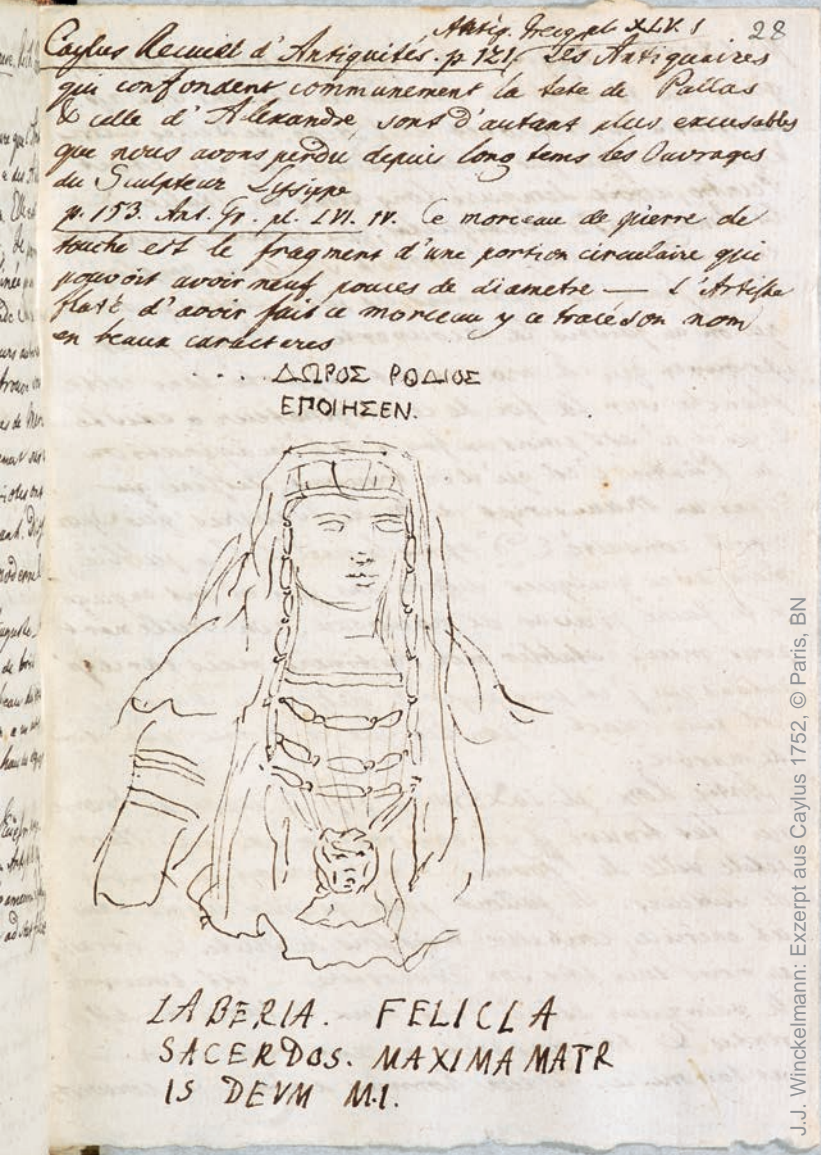 Antiq. Grecq. pl. XLV. 1
28
Caylus Recueil d'Antiquités. p. 121. Les Antiquaires
qui confondent communement la tete de Pallas
& celle d'Alexandre, sont d'autant plus excusables
que nous avons perdu depuis long tems les Ouvrages
du Sculpteur Lysippe
p. 153. Ant. Gr. pl. LVI. IV. Ce morceau de pierre de
touche est le fragment d'une portion circulaire qui
pouvoit avoir neuf pouces de diametre — L'Artiste
flaté d'avoir fait ce morceau y a tracé son nom
en beaux caracteres
. . ΔΩΡΟΣ ΡΟΔΙΟΣ
ΕΠΟΙΗΣΕΝ.
LABERIA. FELICLA
SACERDOS. MAXIMA MATR
IS DEVM M.I.
J.J. Winckelmann: Exzerpt aus Caylus 1752, © Paris, BN